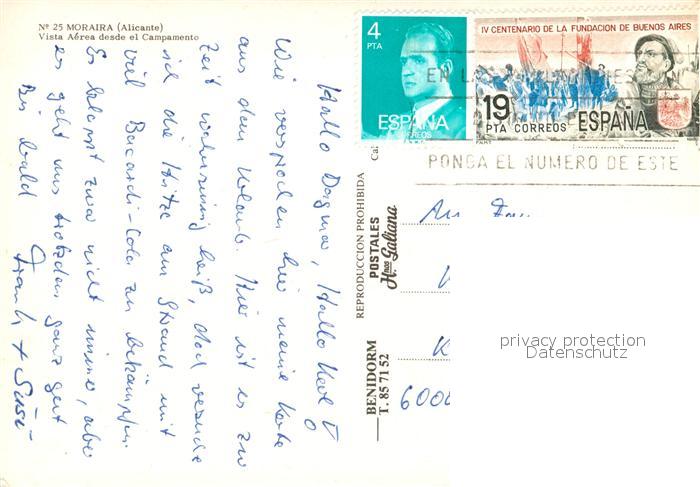 Nº 25 MORAIRA (Alicante)
Vista Aérea desde el Campamento
4
PTA
ESPAÑA
CORREOS
IV CENTENARIO DE LA FUNDACION DE BUENOS AIRES
19
PTA CORREOS ESPAÑA
EN LAS
PONGA EL NUMERO DE ESTE
Hallo Dagmar, Hallo Karl
Wie versprochen hier meine Karte
aus dem Urlaub. Hier ist es zur
Zeit wahnsinnig heiß, doch versuche
ich die Hitze am Strand mit
viel Bacardi-Cola zu bekämpfen.
Es gelingt zwar nicht immer, aber
es geht uns trotzdem ganz gut
Bis bald
Frank + Susi
REPRODUCCION PROHIBIDA
POSTALES
Hnos Galiana
BENIDORM
T. 85 71 52
An Fam.
K
6000
privacy protection
Datenschutz